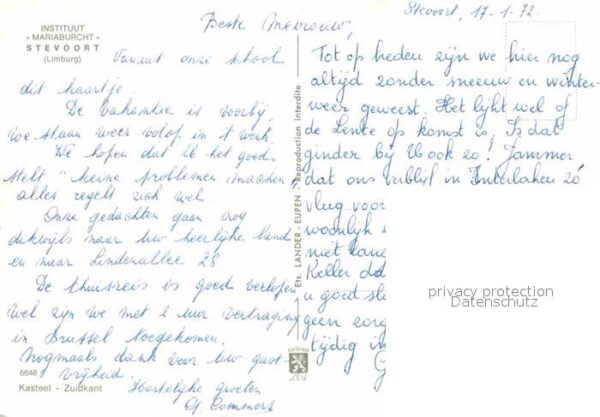 INSTITUUT
« MARIABURCHT »
STEVOORT
(Limburg)
Stevoort, 17-1-72
Beste Mevrouw,
Vanuit onze school
dit kaartje.
De vakantie is voorbij,
we staan weer volop in 't werk.
We hopen dat U het goed
stelt "keine problemen machen",
alles regelt zich wel.
Onze gedachten gaan nog
dikwijls naar uw heerlijke land
en naar Lindenallee 28
De thuisreis is goed verlopen
wel zijn we met 2 uur vertraging
in Brussel toegekomen.
Nogmaals dank voor uw gast-
vrijheid.
Hartelijke groeten
6648
Kasteel - Zuidkant
Ets. LANDER - EUPEN - Reproduction interdite
Tot op heden zijn we hier nog
altijd zonder sneeuw en winter-
weer geweest. Het lijkt wel of
de Lente op komst is. Is dat
ginder bij U ook zo! Jammer
dat ons verblijf in Interlaken zo
vlug voor
woonlijk
niet
Keller
u goed
geen zorg
tijdig in
privacy protection
Datenschutz